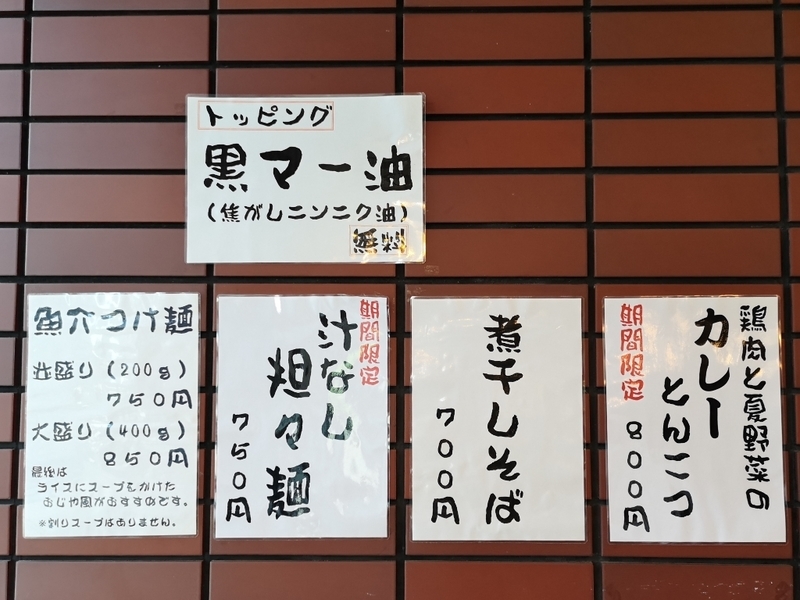 トッピング
黒マー油
（焦がしニンニク油）
無料
魚介つけ麺
並盛り（200g）
750円
大盛り（400g）
850円
最後は
ライスにスープをかけた
おじや風がおすすめです。
※割りスープはありません。
期間限定
汁なし
担々麺
750円
煮干しそば
700円
鶏肉と夏野菜の
カレー
とんこつ
期間限定
800円